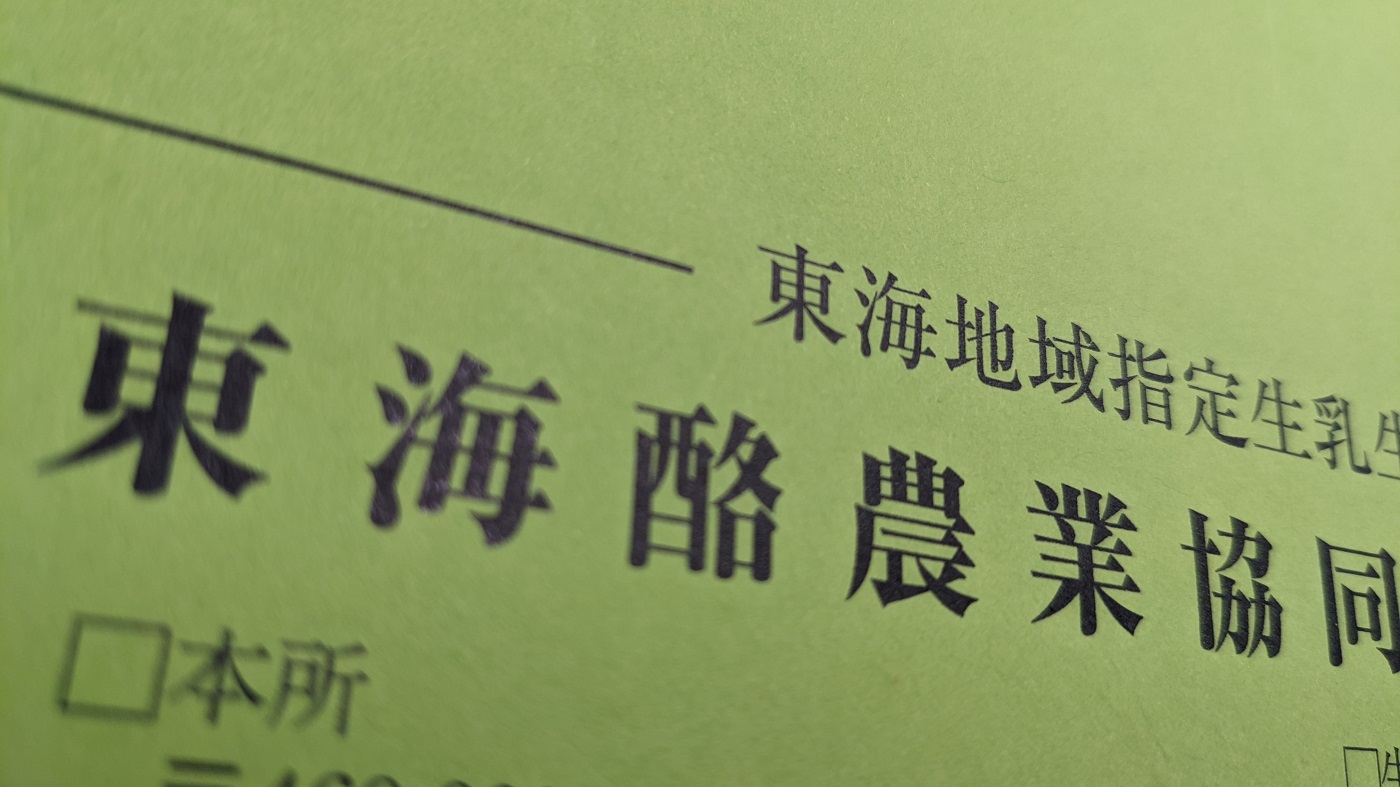 東海地域指定生乳生
東海酪農業協同
□本所
〒460-00